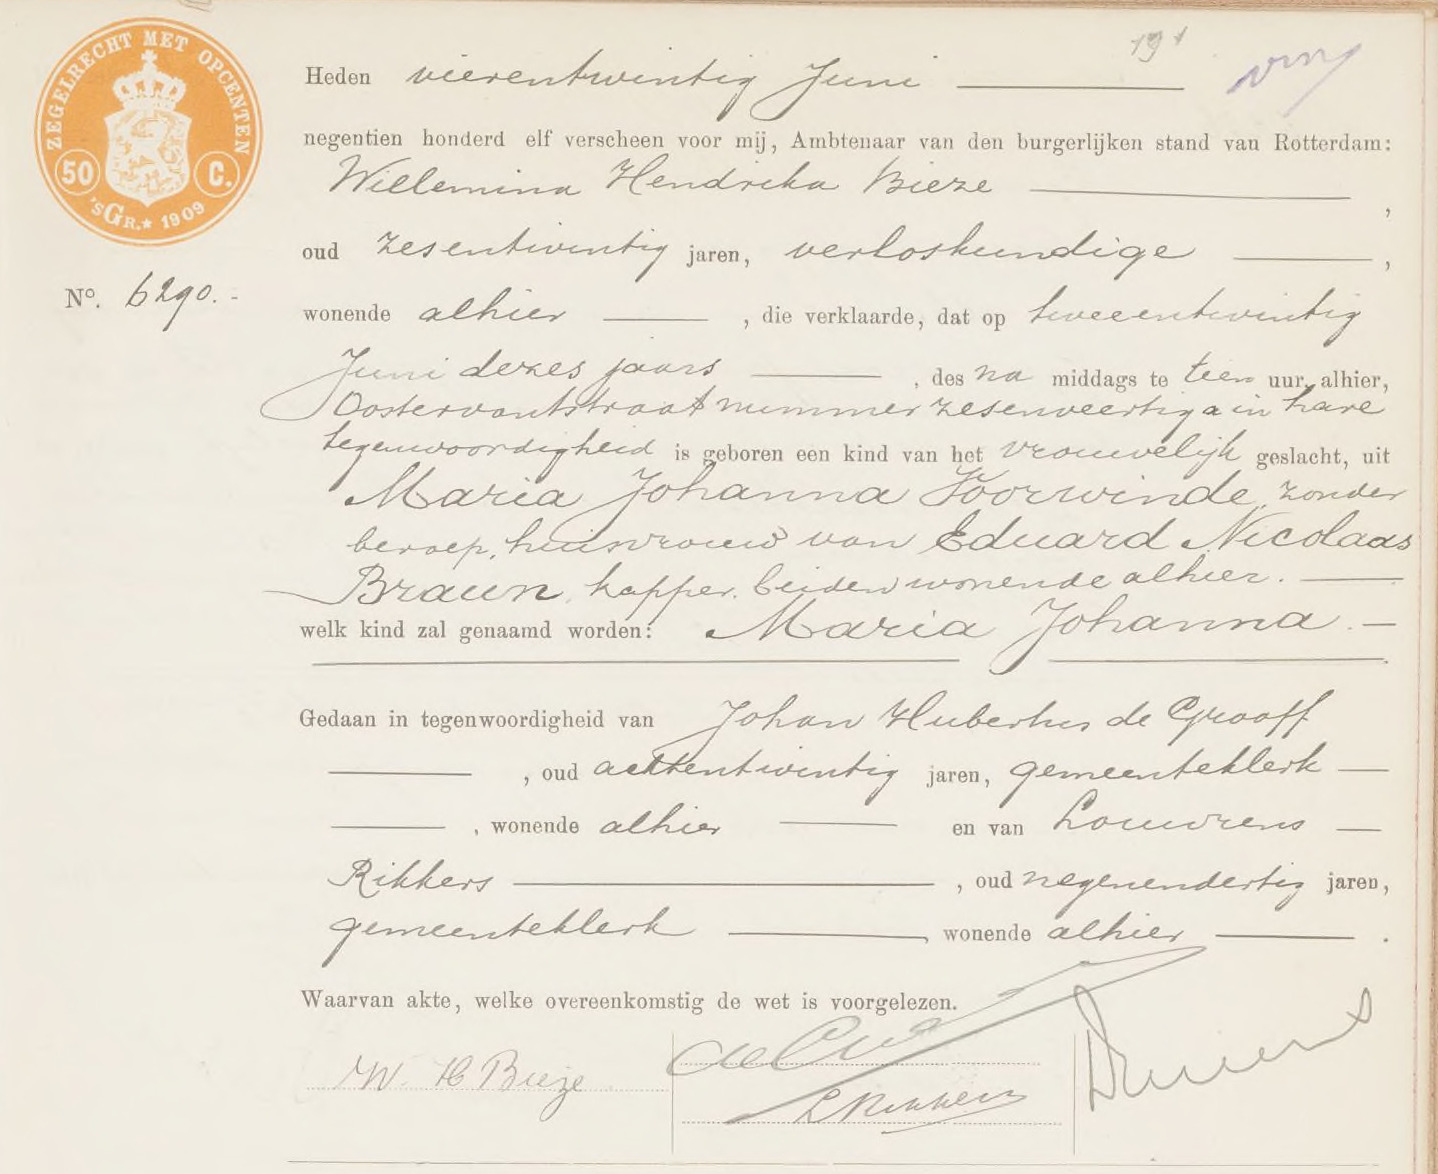 ZEGELRECHT MET OPCENTEN
50 C.
'SGR.★ 1909
Heden vierentwintig Juni
negentien honderd elf verscheen voor mij, Ambtenaar van den burgerlijken stand van Rotterdam:
Willemina Hendrika Bieze ,
oud zesentwintig jaren, verloskundige ,
No. 6290.-
wonende alhier , die verklaarde, dat op tweeentwintig
Juni dezes jaars , des na middags te tien uur, alhier,
Oostervantstraat nummer zesenveertig a in hare
tegenwoordigheid is geboren een kind van het vrouwelijk geslacht, uit
Maria Johanna Voorwinde, zonder
beroep, huisvrouw van Eduard Nicolaas
Braun, kapper, beiden wonende alhier.
welk kind zal genaamd worden: Maria Johanna.
Gedaan in tegenwoordigheid van Johan Hubertus de Graaff
, oud achtentwintig jaren, gemeenteklerk
, wonende alhier en van Louwrens
Rikkers , oud negenendertig jaren,
gemeenteklerk , wonende alhier .
Waarvan akte, welke overeenkomstig de wet is voorgelezen.
W H Bieze
L Rikkers